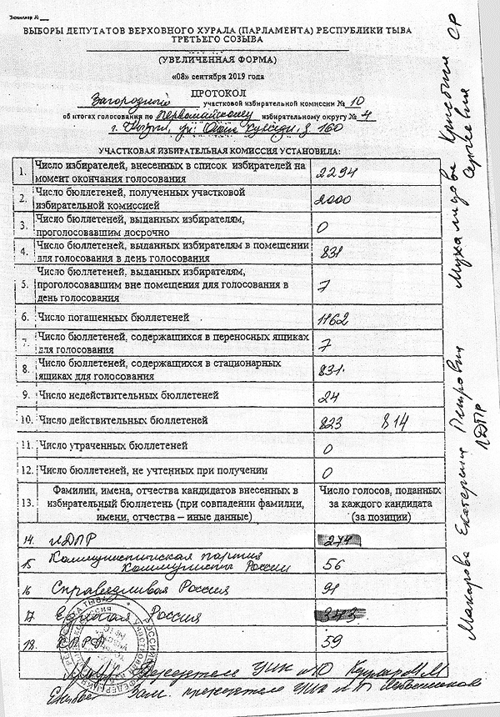 Экземпляр №
ВЫБОРЫ ДЕПУТАТОВ ВЕРХОВНОГО ХУРАЛА (ПАРЛАМЕНТА) РЕСПУБЛИКИ ТЫВА
ТРЕТЬЕГО СОЗЫВА
(УВЕЛИЧЕННАЯ ФОРМА)
«08» сентября 2019 года
ПРОТОКОЛ
Загородный участковой избирательной комиссии № 10
об итогах голосования по Первомайскому избирательному округу № 4
г. Кызыл, ул. 160
УЧАСТКОВАЯ ИЗБИРАТЕЛЬНАЯ КОМИССИЯ УСТАНОВИЛА:
1. Число избирателей, внесенных в список избирателей на момент окончания голосования 2294
2. Число бюллетеней, полученных участковой избирательной комиссией 2000
3. Число бюллетеней, выданных избирателям, проголосовавшим досрочно 0
4. Число бюллетеней, выданных избирателям в помещении для голосования в день голосования 831
5. Число бюллетеней, выданных избирателям, проголосовавшим вне помещения для голосования в день голосования 7
6. Число погашенных бюллетеней 1162
7. Число бюллетеней, содержащихся в переносных ящиках для голосования 7
8. Число бюллетеней, содержащихся в стационарных ящиках для голосования 831
9. Число недействительных бюллетеней 24
10. Число действительных бюллетеней 823 814
11. Число утраченных бюллетеней 0
12. Число бюллетеней, не учтенных при получении 0
13. Фамилии, имена, отчества кандидатов внесенных в избирательный бюллетень (при совпадении фамилии, имени, отчества – иные данные) Число голосов, поданных за каждого кандидата (за позиции)
14. ЛДПР
15 Коммунистическая партия Коммунисты России 56
16 Справедливая Россия 91
17 Единая Россия
18. КПРФ 59
Председатель УИК №10
Зам. председателя УИК
Макарова Екатерина Петровна ЛДПР
Сергеевна СР